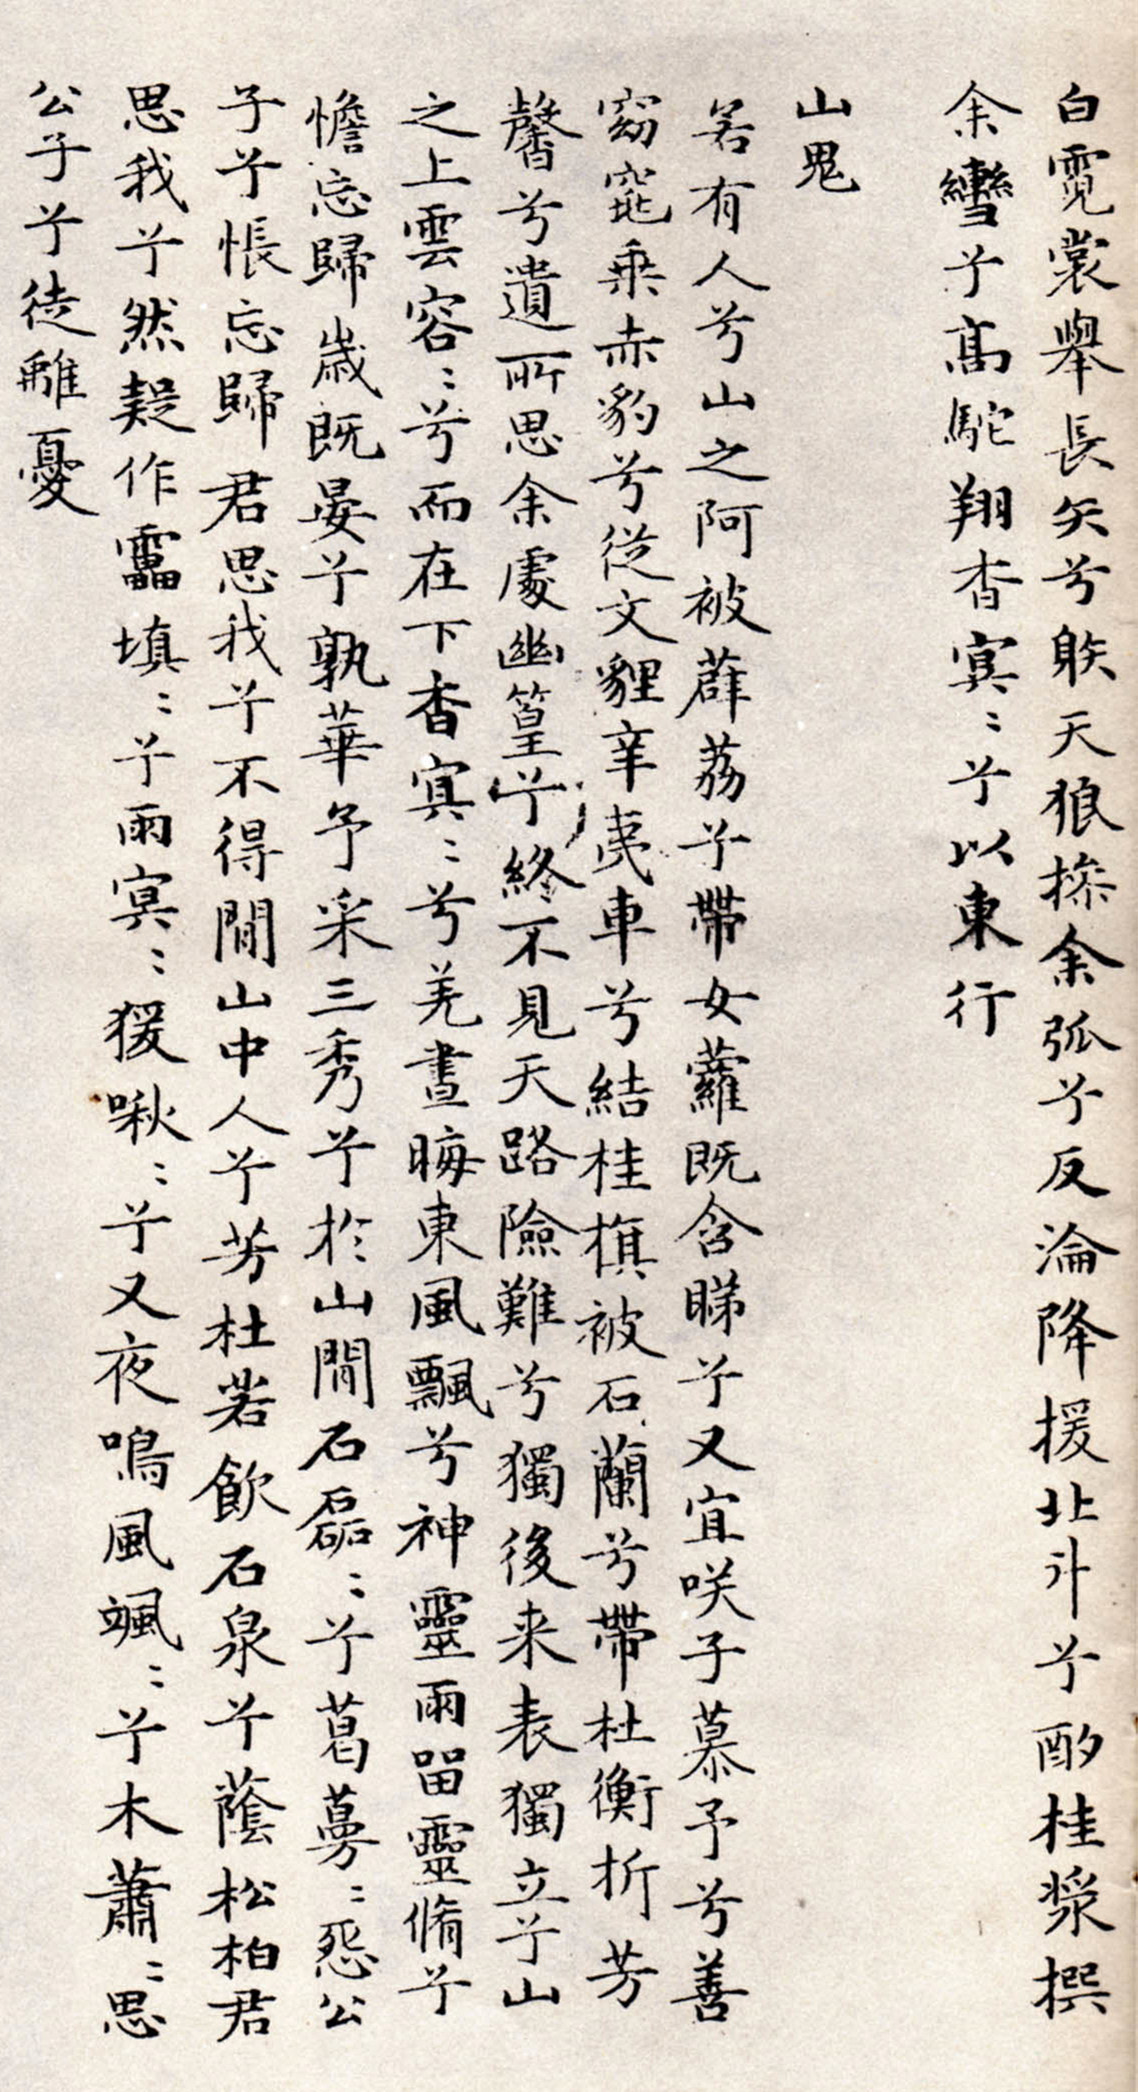 白霓裳舉長矢兮䠶天狼操余弧兮反淪降援北斗兮酌桂漿撰
余轡兮高駝翔杳冥〻兮以東行
山鬼
若有人兮山之阿被薜荔兮帶女蘿既含睇兮又宜咲子慕予兮善
窈窕乗赤豹兮從文貍辛夷車兮結桂旗被石蘭兮帶杜衡折芳
馨兮遺所思余處幽篁兮終不見天路險難兮獨後来表獨立兮山
之上雲容〻兮而在下杳冥〻兮羌晝晦東風飄兮神靈雨留靈脩兮
憺忘歸歲既晏兮孰華予采三秀兮於山閒石磊〻兮葛蔓〻怨公
子兮悵忘歸君思我兮不得閒山中人兮芳杜若飲石泉兮蔭松柏君
思我兮然疑作靁填〻兮雨冥〻猨啾〻兮又夜鳴風颯〻兮木蕭〻思
公子兮徒離憂